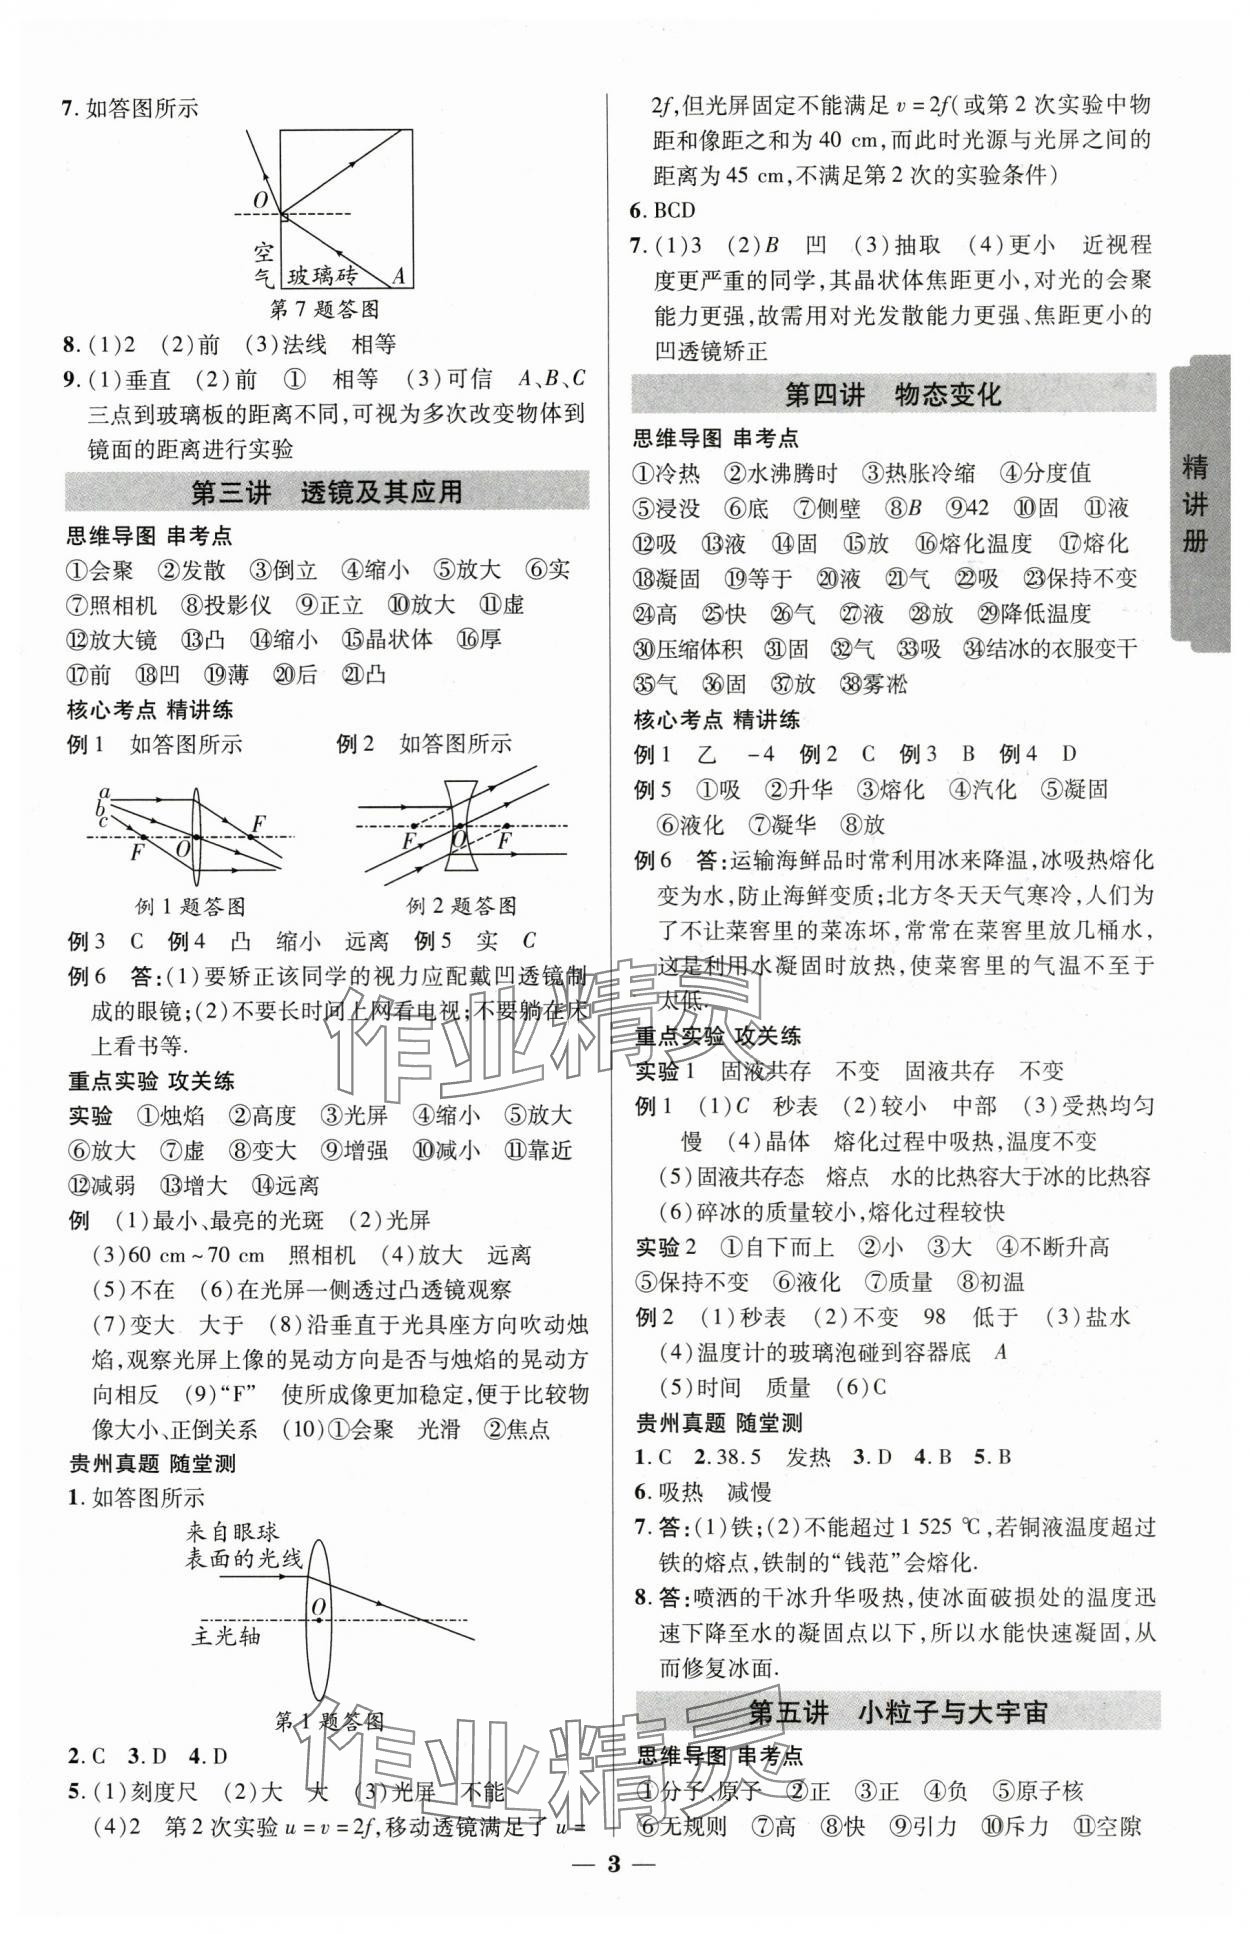 7. 如答图所示
O
空气
玻璃砖
A
第 7 题答图
8. (1)2 (2)前 (3)法线 相等
9. (1)垂直 (2)前 ① 相等 (3)可信 A、B、C
三点到玻璃板的距离不同,可视为多次改变物体到
镜面的距离进行实验
第三讲 透镜及其应用
思维导图 串考点
①会聚 ②发散 ③倒立 ④缩小 ⑤放大 ⑥实
⑦照相机 ⑧投影仪 ⑨正立 ⑩放大 ⑪虚
⑫放大镜 ⑬凸 ⑭缩小 ⑮晶状体 ⑯厚
⑰前 ⑱凹 ⑲薄 ⑳后 ㉑凸
核心考点 精讲练
例 1 如答图所示 例 2 如答图所示
a
b
c
F
O
F
例 1 题答图
F
O
F
例 2 题答图
例 3 C 例 4 凸 缩小 远离 例 5 实 C
例 6 答:(1)要矫正该同学的视力应配戴凹透镜制
成的眼镜;(2)不要长时间上网看电视;不要躺在床
上看书等.
重点实验 攻关练
实验 ①烛焰 ②高度 ③光屏 ④缩小 ⑤放大
⑥放大 ⑦虚 ⑧变大 ⑨增强 ⑩减小 ⑪靠近
⑫减弱 ⑬增大 ⑭远离
例 (1)最小、最亮的光斑 (2)光屏
(3)60 cm~70 cm 照相机 (4)放大 远离
(5)不在 (6)在光屏一侧透过凸透镜观察
(7)变大 大于 (8)沿垂直于光具座方向吹动烛
焰,观察光屏上像的晃动方向是否与烛焰的晃动方
向相反 (9)“F” 使所成像更加稳定,便于比较物
像大小、正倒关系 (10)①会聚 光滑 ②焦点
贵州真题 随堂测
1. 如答图所示
来自眼球
表面的光线
O
主光轴
第 1 题答图
2. C 3. D 4. D
5. (1)刻度尺 (2)大 大 (3)光屏 不能
(4)2 第 2 次实验 u = v = 2f,移动透镜满足了 u =
2f,但光屏固定不能满足 v = 2f(或第 2 次实验中物
距和像距之和为 40 cm,而此时光源与光屏之间的
距离为 45 cm,不满足第 2 次的实验条件)
6. BCD
7. (1)3 (2)B 凹 (3)抽取 (4)更小 近视程
度更严重的同学,其晶状体焦距更小,对光的会聚
能力更强,故需用对光发散能力更强、焦距更小的
凹透镜矫正
第四讲 物态变化
思维导图 串考点
①冷热 ②水沸腾时 ③热胀冷缩 ④分度值
⑤浸没 ⑥底 ⑦侧壁 ⑧B ⑨42 ⑩固 ⑪液
⑫吸 ⑬液 ⑭固 ⑮放 ⑯熔化温度 ⑰熔化
⑱凝固 ⑲等于 ⑳液 ㉑气 ㉒吸 ㉓保持不变
㉔高 ㉕快 ㉖气 ㉗液 ㉘放 ㉙降低温度
㉚压缩体积 ㉛固 ㉜气 ㉝吸 ㉞结冰的衣服变干
㉟气 ㊱固 ㊲放 ㊳雾凇
核心考点 精讲练
例 1 乙 -4 例 2 C 例 3 B 例 4 D
例 5 ①吸 ②升华 ③熔化 ④汽化 ⑤凝固
⑥液化 ⑦凝华 ⑧放
例 6 答:运输海鲜品时常利用冰来降温,冰吸热熔化
变为水,防止海鲜变质;北方冬天天气寒冷,人们为
了不让菜窖里的菜冻坏,常常在菜窖里放几桶水,
这是利用水凝固时放热,使菜窖里的气温不至于
太低.
重点实验 攻关练
实验 1 固液共存 不变 固液共存 不变
例 1 (1)C 秒表 (2)较小 中部 (3)受热均匀
慢 (4)晶体 熔化过程中吸热,温度不变
(5)固液共存态 熔点 水的比热容大于冰的比热容
(6)碎冰的质量较小,熔化过程较快
实验 2 ①自下而上 ②小 ③大 ④不断升高
⑤保持不变 ⑥液化 ⑦质量 ⑧初温
例 2 (1)秒表 (2)不变 98 低于 (3)盐水
(4)温度计的玻璃泡碰到容器底 A
(5)时间 质量 (6)C
贵州真题 随堂测
1. C 2. 38.5 发热 3. D 4. B 5. B
6. 吸热 减慢
7. 答:(1)铁;(2)不能超过 1 525 ℃,若铜液温度超过
铁的熔点,铁制的“钱范”会熔化.
8. 答:喷洒的干冰升华吸热,使冰面破损处的温度迅
速下降至水的凝固点以下,所以水能快速凝固,从
而修复冰面.
第五讲 小粒子与大宇宙
思维导图 串考点
①分子、原子 ②正 ③正 ④负 ⑤原子核
⑥无规则 ⑦高 ⑧快 ⑨引力 ⑩斥力 ⑪空隙
精讲册
— 3 —
作业精灵
作业精灵